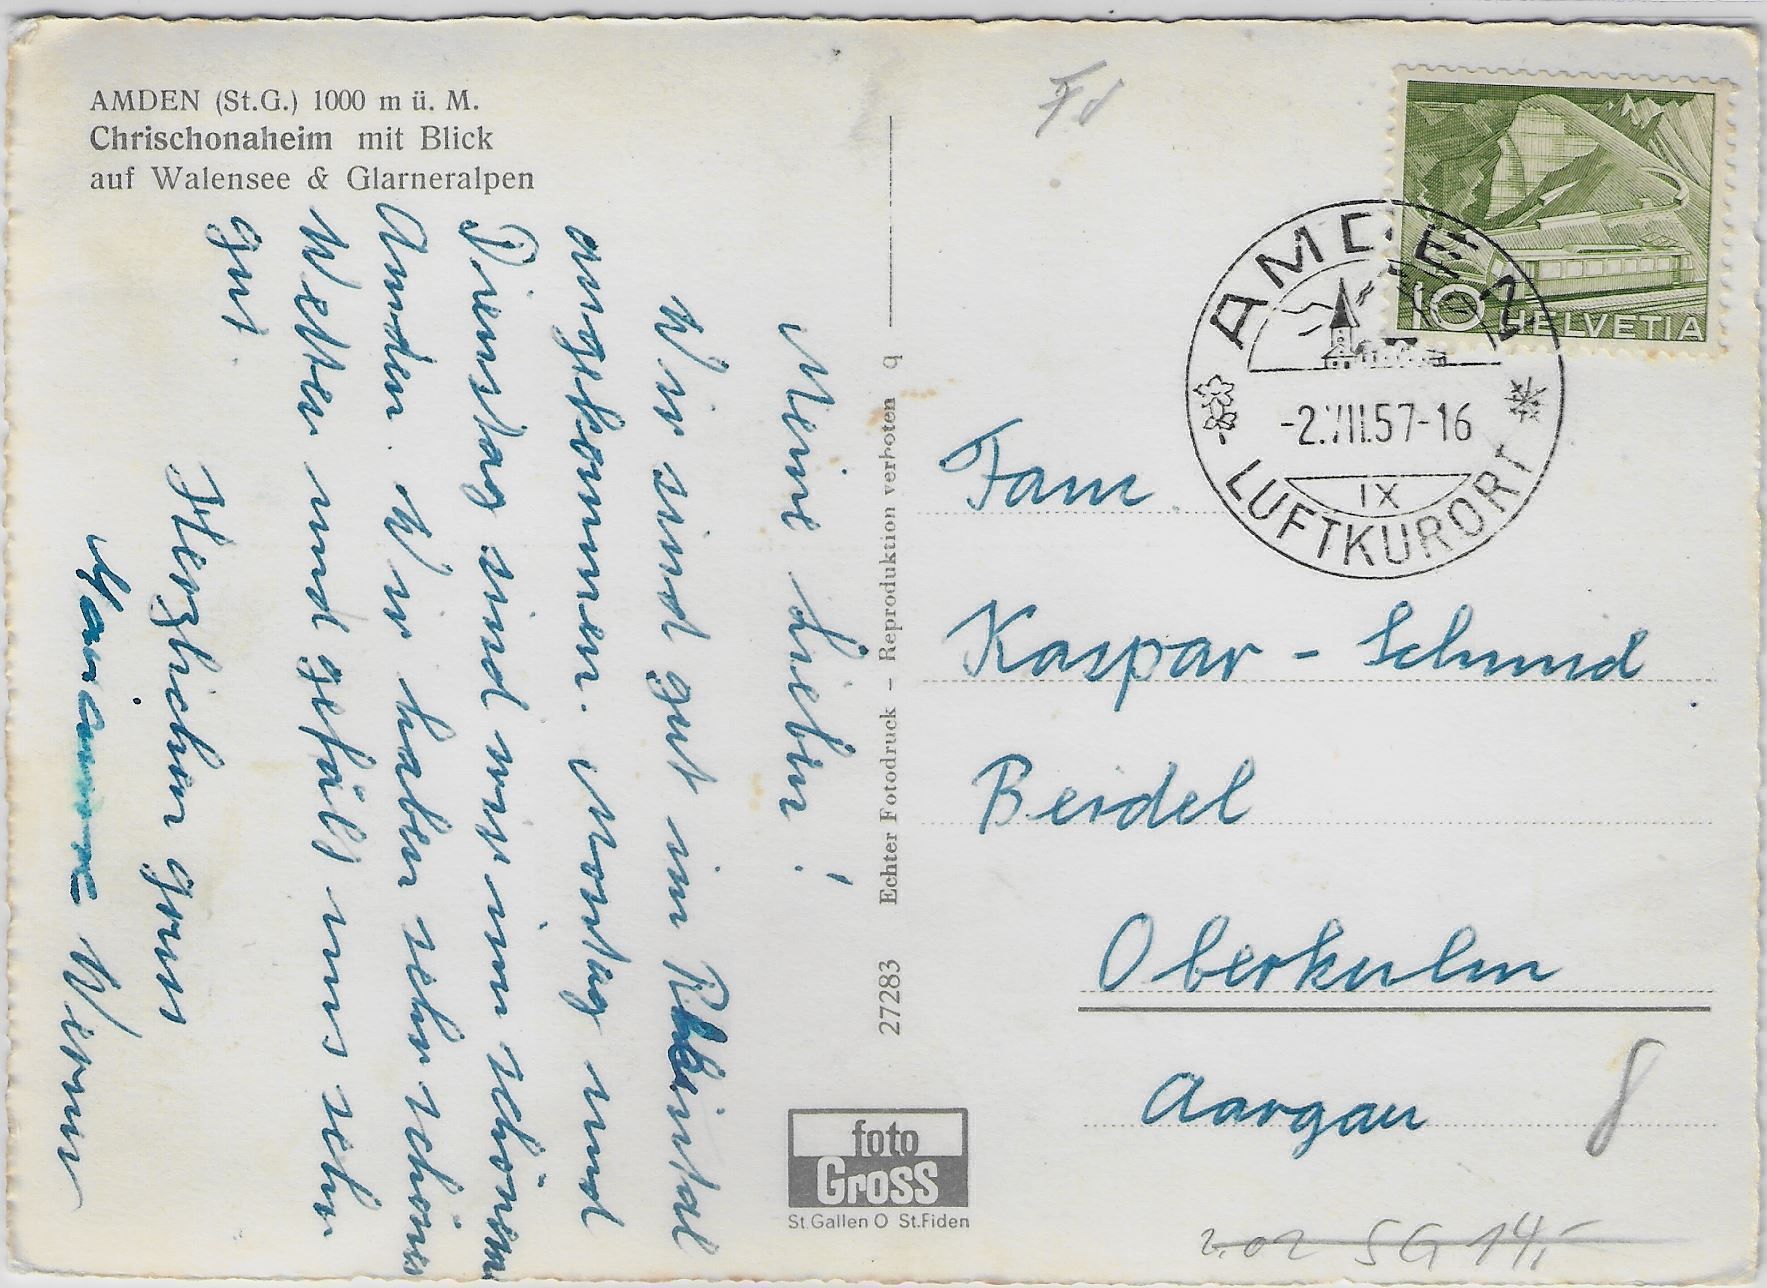 AMDEN (St.G.) 1000 m ü. M.
Chrischonaheim mit Blick
auf Walensee & Glarneralpen
Meine Lieben!
Wir sind gut im Rheintal
angekommen. Montag und
Dienstag sind wir im schönen
Amden. Wir haben sehr schönes
Wetter und gefällt uns sehr
gut.
Herzlichen gruss
Marianne Werner
27283 Echter Fotodruck – Reproduktion verboten q
foto
Gross
St.Gallen O St.Fiden
10 HELVETIA
AMDEN
-2.VII.57-16
IX
LUFTKURORT
Fam.
Kaspar - Schmid
Beidel
Oberkulm
Aargau
2.02 SG 14,-